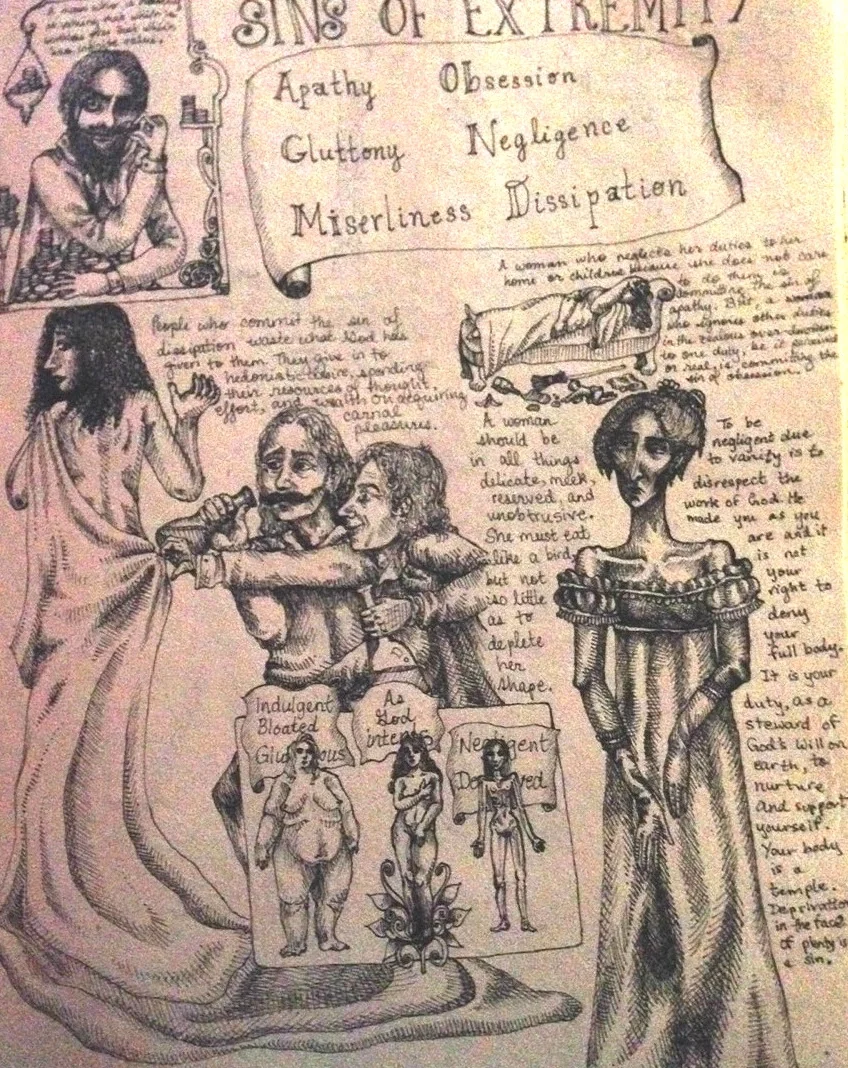 SINS OF EXTREMITY
Apathy Obsession
Gluttony Negligence
Miserliness Dissipation
A woman who neglects her duties to her
home or children because she does not care
to do them is
committing the sin of
apathy. But, a woman
who ignores other duties
in the zealous over-devotion
to one duty, be it perceived
or real, is committing the
sin of obsession.
People who commit the sin of
dissipation waste what God has
given to them. They give in to
hedonistic desire, spending
their resources of thought,
effort, and wealth on acquiring
carnal
pleasures.
A woman
should be
in all things
delicate, meek,
reserved, and
unobtrusive.
She must eat
like a bird,
but not
so little
as to
deplete
her
shape.
To be
negligent due
to vanity is to
disrespect the
work of God. He
made you as you
are and it
is not
your
right to
deny
your
full body.
It is your
duty, as a
steward of
God's will on
earth, to
nurture
and support
yourself.
Your body
is a
temple.
Deprivation
in the face
of plenty is
a sin.
Indulgent
Bloated
As
God
Negligent